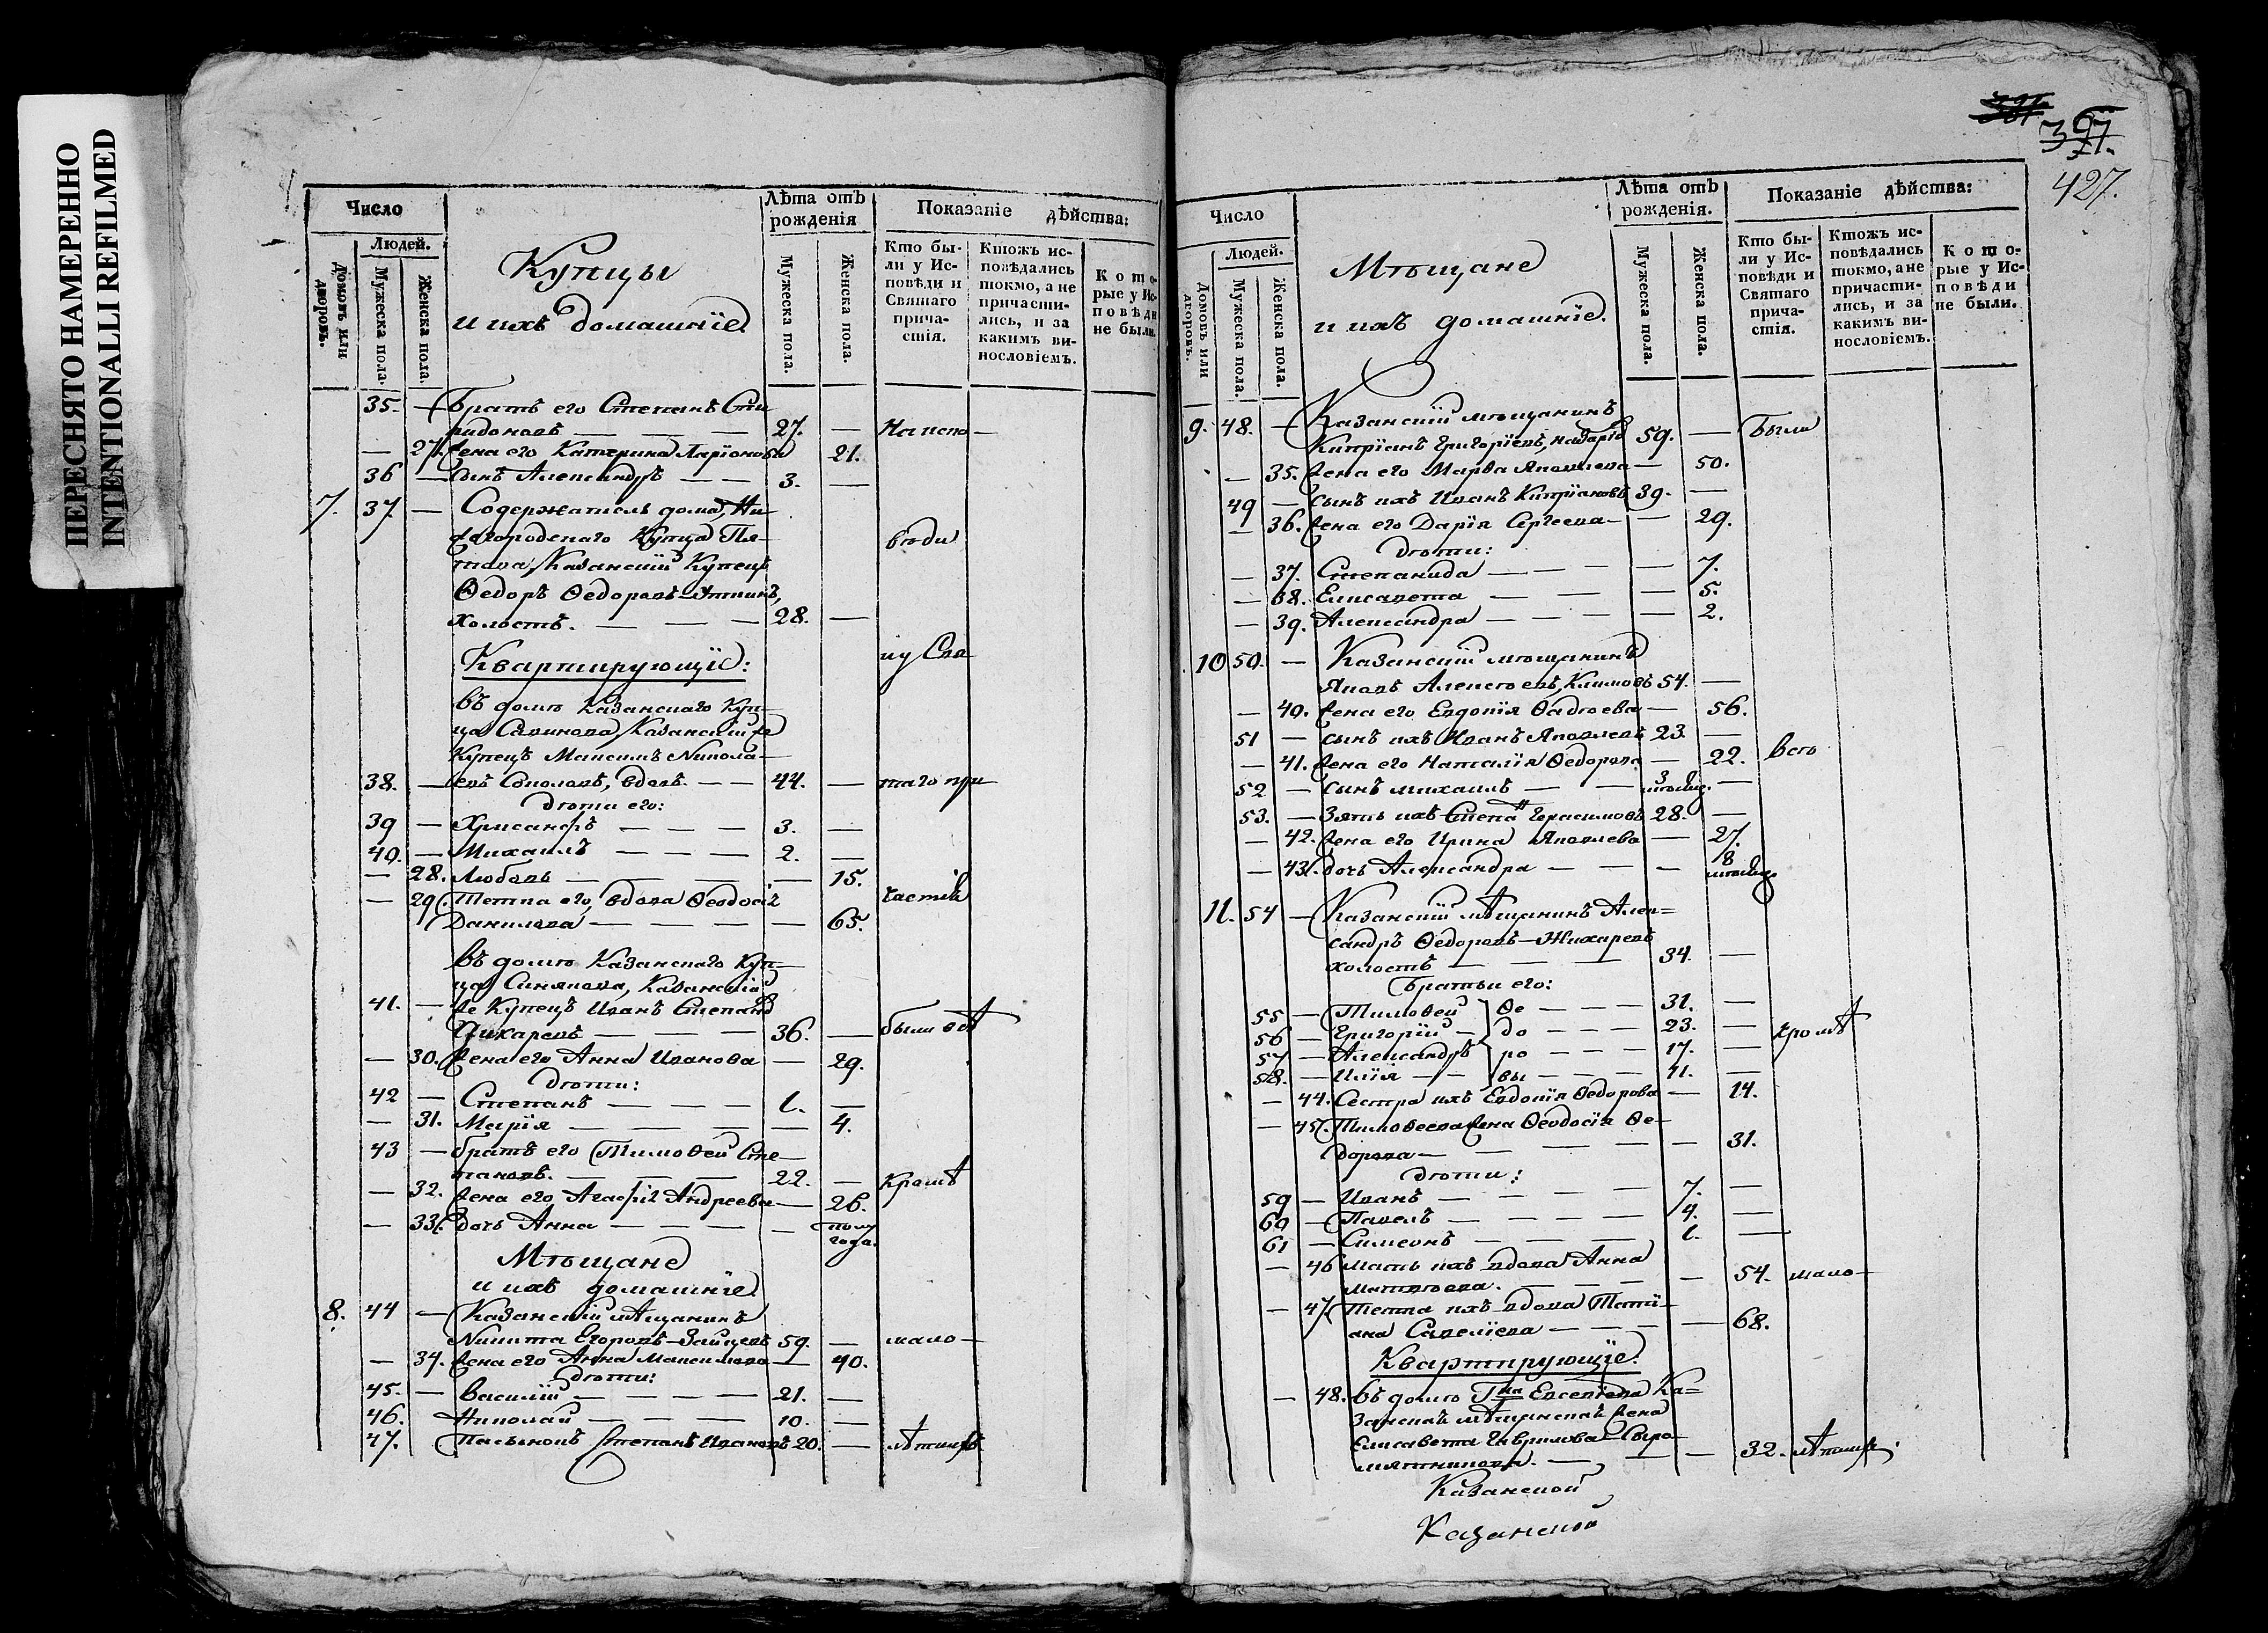 ПЕРЕСНЯТО НАМЕРЕННО
INTENTIONALLI REFILMED
Число
Людей.
Домовъ или дворовъ.
Мужеска пола.
Женска пола.
Купцы
и ихъ домашніе.
Лѣта отъ рожденія
Мужеска пола.
Женска пола.
Показаніе дѣйства:
Кто были у Исповѣди и Святаго причастія.
Ктожъ исповѣдались токмо, а не причастились, и за какимъ винословіемъ.
Которые у Исповѣди не были.
35. — Братъ его Степанъ Спи
ридоновъ — — — 27. — На испо—
— 27. Жена его Катерина Ларіонова 21.
36 — Сынъ Александръ — — 3. —
7. 37. — Содержатель дома, Ни
жегородскаго Купца Пя—
това, Казанскій Купецъ вѣди
Ѳедоръ Ѳедоровъ
холостъ. — — — 28. —
Квартирующіе: и у Свя
въ домѣ Казанскаго Куп—
ца Савинова, Казанскій же
Купецъ Максимъ Никола—
38. — евъ Соколовъ, вдовъ. — — 44. — таго при
дѣти его:
39 — Хрисанфъ — — — 3. —
40. — Михаилъ — — — 2. —
— 28. Любовь — — — — 15.
— 29. Тетка его, вдова Ѳеодосія частія
Данилова — — — — 65.
въ домѣ Казанскаго Куп—
ца Синякова, Казанскій
41. — же Купецъ Иванъ Степановъ
Жихаревъ — — — 36. — были всѣ
— 30. Жена его Анна Иванова — 29.
дѣти:
42 — Степанъ — — — 1. —
— 31. Марія — — — — 4.
43 — братъ его Тимоѳей Сте—
пановъ. — — — 22. — кромѣ
— 32. Жена его Агафія Андреева — 26.
— 33. дочь Анна — — — — полу
года.
Мѣщане
и ихъ домашніе.
8. 44 — Казанскій мѣщанинъ
Никита Егоровъ—Зайцевъ 59. — мало—
— 34. Жена его Анна Максимова — 40.
дѣти:
45. — Василій — — — — 21. —
46. Николай — — — 10. —
47. Пасынокъ Степанъ Ивановъ 20. — лѣтнихъ
397
427.
Число
Людей.
Домовъ или дворовъ.
Мужеска пола.
Женска пола.
Мѣщане
и ихъ домашніе.
Лѣта отъ рожденія.
Мужеска пола.
Женска пола.
Показаніе дѣйства:
Кто были у Исповѣди и Святаго причастія.
Ктожъ исповѣдались токмо, а не причастились, и за какимъ винословіемъ.
Которые у Исповѣди не были.
9. 48. — Казанскій мѣщанинъ
Кипріанъ Григоріевъ, 59. — Были
— 35. Жена его Марѳа Яковлева — 50.
49 — Сынъ ихъ Иванъ Кипріановъ 39. —
— 36. Жена его Дарія Сергеева — — 29.
дѣти:
— 37. Степанида — — — — 7.
— 38. Елисавета — — — 5.
— 39. Александра — — — — 2.
10 50. — Казанскій мѣщанинъ
Яковъ Алексѣевъ, Климовъ 54. —
— 40. Жена его Евдокія Ѳадѣева — 56.
51 — сынъ ихъ Иванъ Яковлевъ 23. — всѣ
— 41. Жена его Наталія Ѳедорова — 22.
52 — сынъ михаилъ — — 3 мѣсяц. —
53. — Зять ихъ Степанъ Герасимовъ 28. —
— 42. Жена его Ирина Яковлева — 27.
— 43. дочь Александра — — — 8
мѣсяц.
11. 54 — Казанскій мѣщанинъ Алек=
сандръ Ѳедоровъ—Жихаревъ
холостъ — — — 34. —
братьи его:
55 — Тимоѳей Ѳе — — — 31. —
56 — Григорій — до — — — 23. — кромѣ
57 — Александръ ро — — — 17. —
58. — Илія — — вы — — — 11. —
— 44. Сестра ихъ Евдокія Ѳедорова — 14.
— 45. Тимоѳеева Жена Ѳеодосія Ѳе—
дорова — — — — — 31.
дѣти:
59 — Иванъ — — — — 7. —
60 — Павелъ — — — — 4. —
61 — Симеонъ — — — — 1. —
— 46 мать ихъ вдова Анна
матвѣева. — — — — 54. мало—
— 47. Тетка ихъ вдова Тати—
ана Савеліева — — — — 68.
Квартирующіе.
— 48. въ домѣ Гна Евсевіева Ка=
занская мѣщанская Жена
Елисавета Гаврилова—Сыро—
мятникова. — — — 32. лѣтнихъ.
Казанской
Казанской